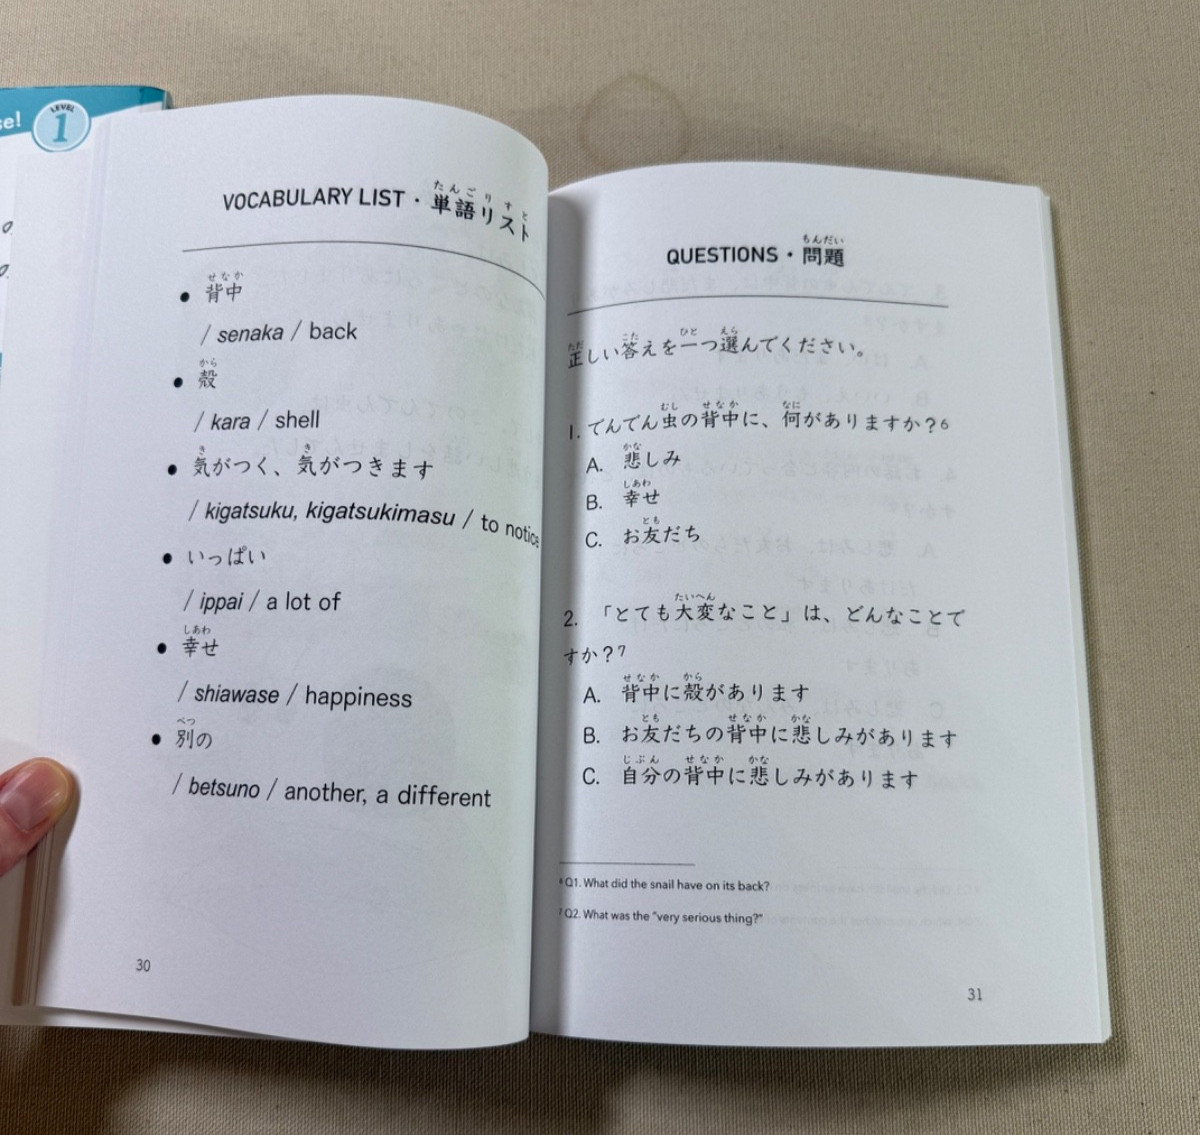 se!
LEVEL
1
VOCABULARY LIST・単語リスト
たんごりすと
せなか
• 背中
/ senaka / back
から
• 殻
/ kara / shell
き き
• 気がつく、気がつきます
/ kigatsuku, kigatsukimasu / to notice
• いっぱい
/ ippai / a lot of
しあわ
• 幸せ
/ shiawase / happiness
べつ
• 別の
/ betsuno / another, a different
30
もんだい
QUESTIONS・問題
ただ こた ひと えら
正しい答えを一つ選んでください。
むし せなか なに
1. でんでん虫の背中に、何がありますか？6
かな
A. 悲しみ
しあわ
B. 幸せ
とも
C. お友だち
たいへん
2. 「とても大変なこと」は、どんなことで
すか？7
せなか から
A. 背中に殻があります
とも せなか かな
B. お友だちの背中に悲しみがあります
じぶん せなか かな
C. 自分の背中に悲しみがあります
6 Q1. What did the snail have on its back?
7 Q2. What was the "very serious thing?"
31